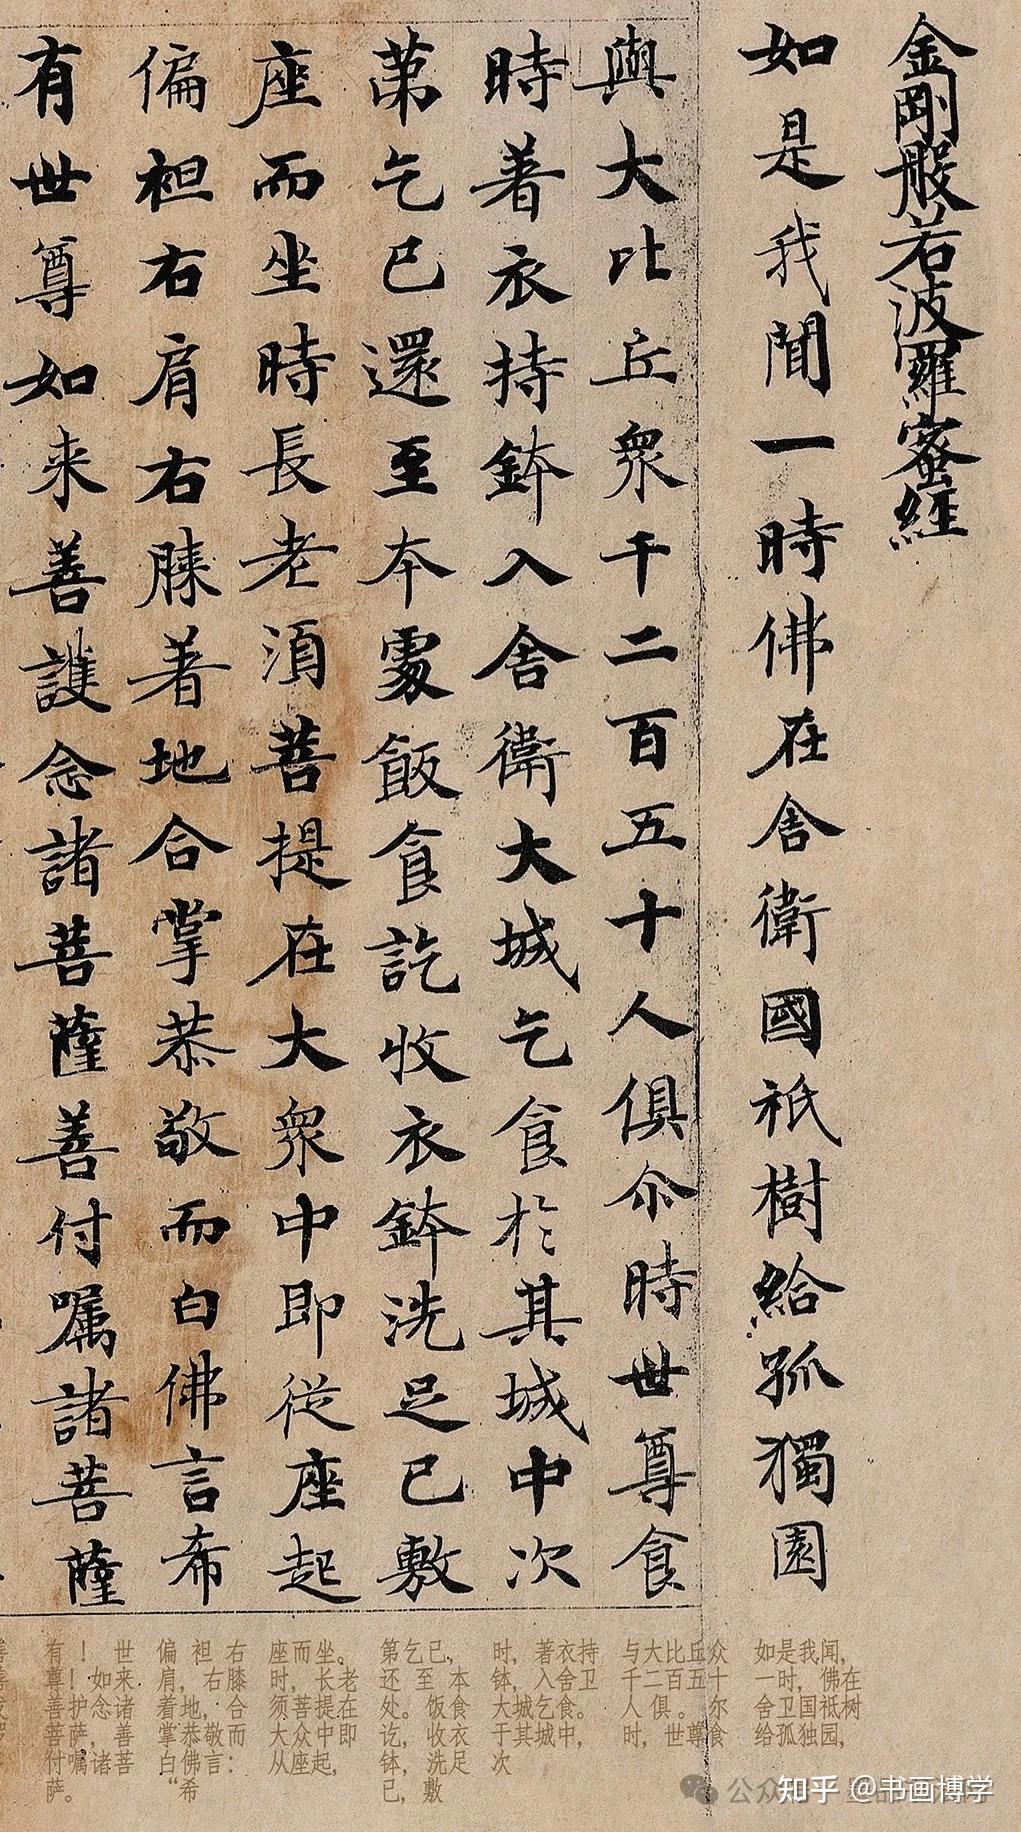 金剛般若波羅蜜經
如是我聞一時佛在舍衛國祇樹給孤獨園
與大比丘衆千二百五十人俱尒時世尊食
時著衣持鉢入舍衛大城乞食於其城中次
第乞已還至本處飯食訖收衣鉢洗足已敷
座而坐時長老須菩提在大衆中即從座起
偏袒右肩右膝著地合掌恭敬而白佛言希
有世尊如来善護念諸菩薩善付嘱諸菩薩
如是我闻，
一时，佛在
舍卫国祇树
给孤独园，
与大比丘众
千二百五十
人俱。尔
时，世尊食
时，著衣持
钵，入舍卫
大城乞食。
于其城中，
次
第乞已，
还至本
处。饭食
讫，收衣
钵，洗足
已，敷
座而坐。
时，长老
须菩提在
大众中即
从座起，
偏袒右
肩，右膝
着地，合
掌恭敬而
白佛言：
“希
有！世
尊！如来
善护念诸
菩萨，善
付嘱诸菩
萨。
公众号
知乎 @书画博学